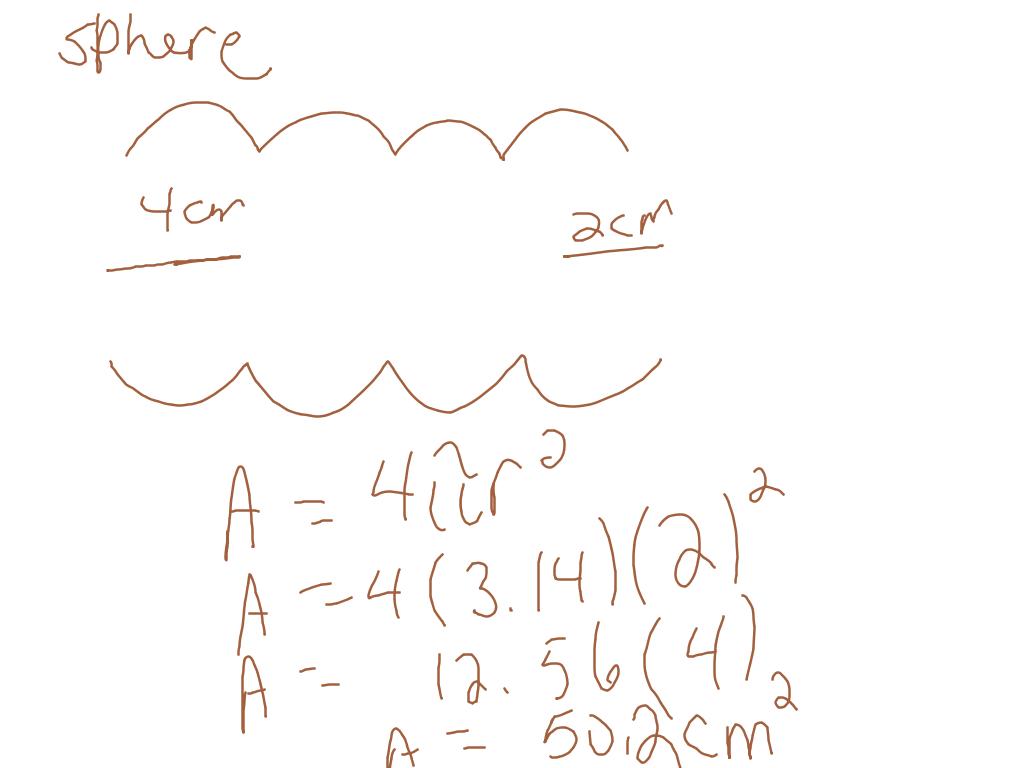 sphere
4cm 2cm
A = 4πr²
A = 4(3.14)(2)²
A = 12.56(4)
A = 50.2cm²